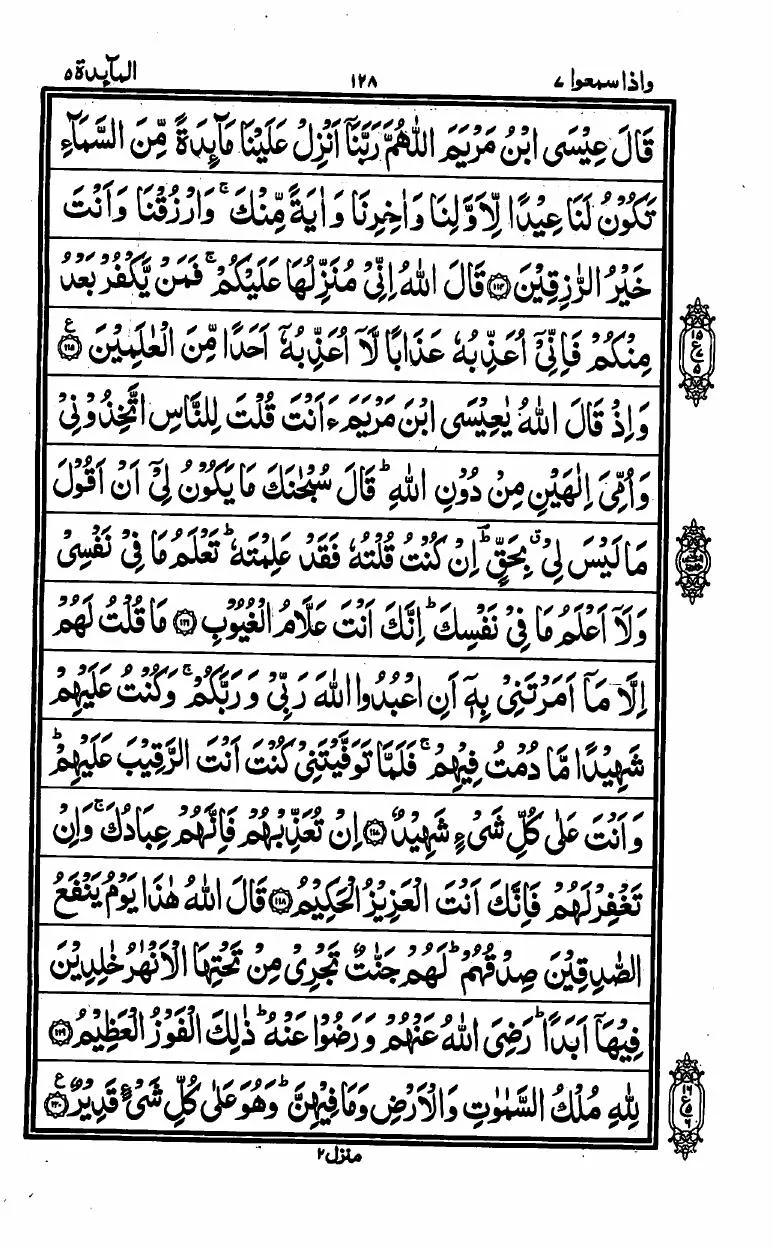 واذا سمعوا ٧ ١٢٨ المآىِٕدة ٥
قَالَ عِيْسَى ابْنُ مَرْيَمَ اللّٰهُمَّ رَبَّنَاۤ اَنْزِلْ عَلَيْنَا مَآىِٕدَةً مِّنَ السَّمَآءِ
تَكُوْنُ لَنَا عِيْدًا لِّاَوَّلِنَا وَاٰخِرِنَا وَاٰيَةً مِّنْكَ ۚ وَارْزُقْنَا وَاَنْتَ
خَيْرُ الرّٰزِقِيْنَ ﴿۱۱۴﴾ قَالَ اللّٰهُ اِنِّىْ مُنَزِّلُهَا عَلَيْكُمْ ۚ فَمَنْ يَّكْفُرْ بَعْدُ
مِنْكُمْ فَاِنِّىْۤ اُعَذِّبُهٗ عَذَابًا لَّاۤ اُعَذِّبُهٗۤ اَحَدًا مِّنَ الْعٰلَمِيْنَ ﴿۱۱۵﴾ ع
١٥
ع ٧
٥
وَاِذْ قَالَ اللّٰهُ يٰعِيْسَى ابْنَ مَرْيَمَ ءَاَنْتَ قُلْتَ لِلنَّاسِ اتَّخِذُوْنِىْ
وَاُمِّىَ اِلٰهَيْنِ مِنْ دُوْنِ اللّٰهِ ؕ قَالَ سُبْحٰنَكَ مَا يَكُوْنُ لِىْۤ اَنْ اَقُوْلَ
مَا لَيْسَ لِىْ ۗ بِحَقٍّ ؕ اِنْ كُنْتُ قُلْتُهٗ فَقَدْ عَلِمْتَهٗ ؕ تَعْلَمُ مَا فِىْ نَفْسِىْ
وَلَاۤ اَعْلَمُ مَا فِىْ نَفْسِكَ ؕ اِنَّكَ اَنْتَ عَلَّامُ الْغُيُوْبِ ﴿۱۱۶﴾ مَا قُلْتُ لَهُمْ
اِلَّا مَاۤ اَمَرْتَنِىْ بِهٖۤ اَنِ اعْبُدُوا اللّٰهَ رَبِّىْ وَرَبَّكُمْ ۚ وَكُنْتُ عَلَيْهِمْ
شَهِيْدًا مَّا دُمْتُ فِيْهِمْ ۚ فَلَمَّا تَوَفَّيْتَنِىْ كُنْتَ اَنْتَ الرَّقِيْبَ عَلَيْهِمْ ؕ
وَاَنْتَ عَلٰى كُلِّ شَىْءٍ شَهِيْدٌ ﴿۱۱۷﴾ اِنْ تُعَذِّبْهُمْ فَاِنَّهُمْ عِبَادُكَ ۚ وَاِنْ
تَغْفِرْ لَهُمْ فَاِنَّكَ اَنْتَ الْعَزِيْزُ الْحَكِيْمُ ﴿۱۱۸﴾ قَالَ اللّٰهُ هٰذَا يَوْمُ يَنْفَعُ
الصّٰدِقِيْنَ صِدْقُهُمْ ؕ لَهُمْ جَنّٰتٌ تَجْرِىْ مِنْ تَحْتِهَا الْاَنْهٰرُ خٰلِدِيْنَ
فِيْهَاۤ اَبَدًا ؕ رَضِىَ اللّٰهُ عَنْهُمْ وَرَضُوْا عَنْهُ ؕ ذٰلِكَ الْفَوْزُ الْعَظِيْمُ ﴿۱۱۹﴾
لِلّٰهِ مُلْكُ السَّمٰوٰتِ وَالْاَرْضِ وَمَا فِيْهِنَّ ؕ وَهُوَ عَلٰى كُلِّ شَىْءٍ قَدِيْرٌ ﴿۱۲۰﴾ ع
١٦
ع ٥
٦
منزل ٢